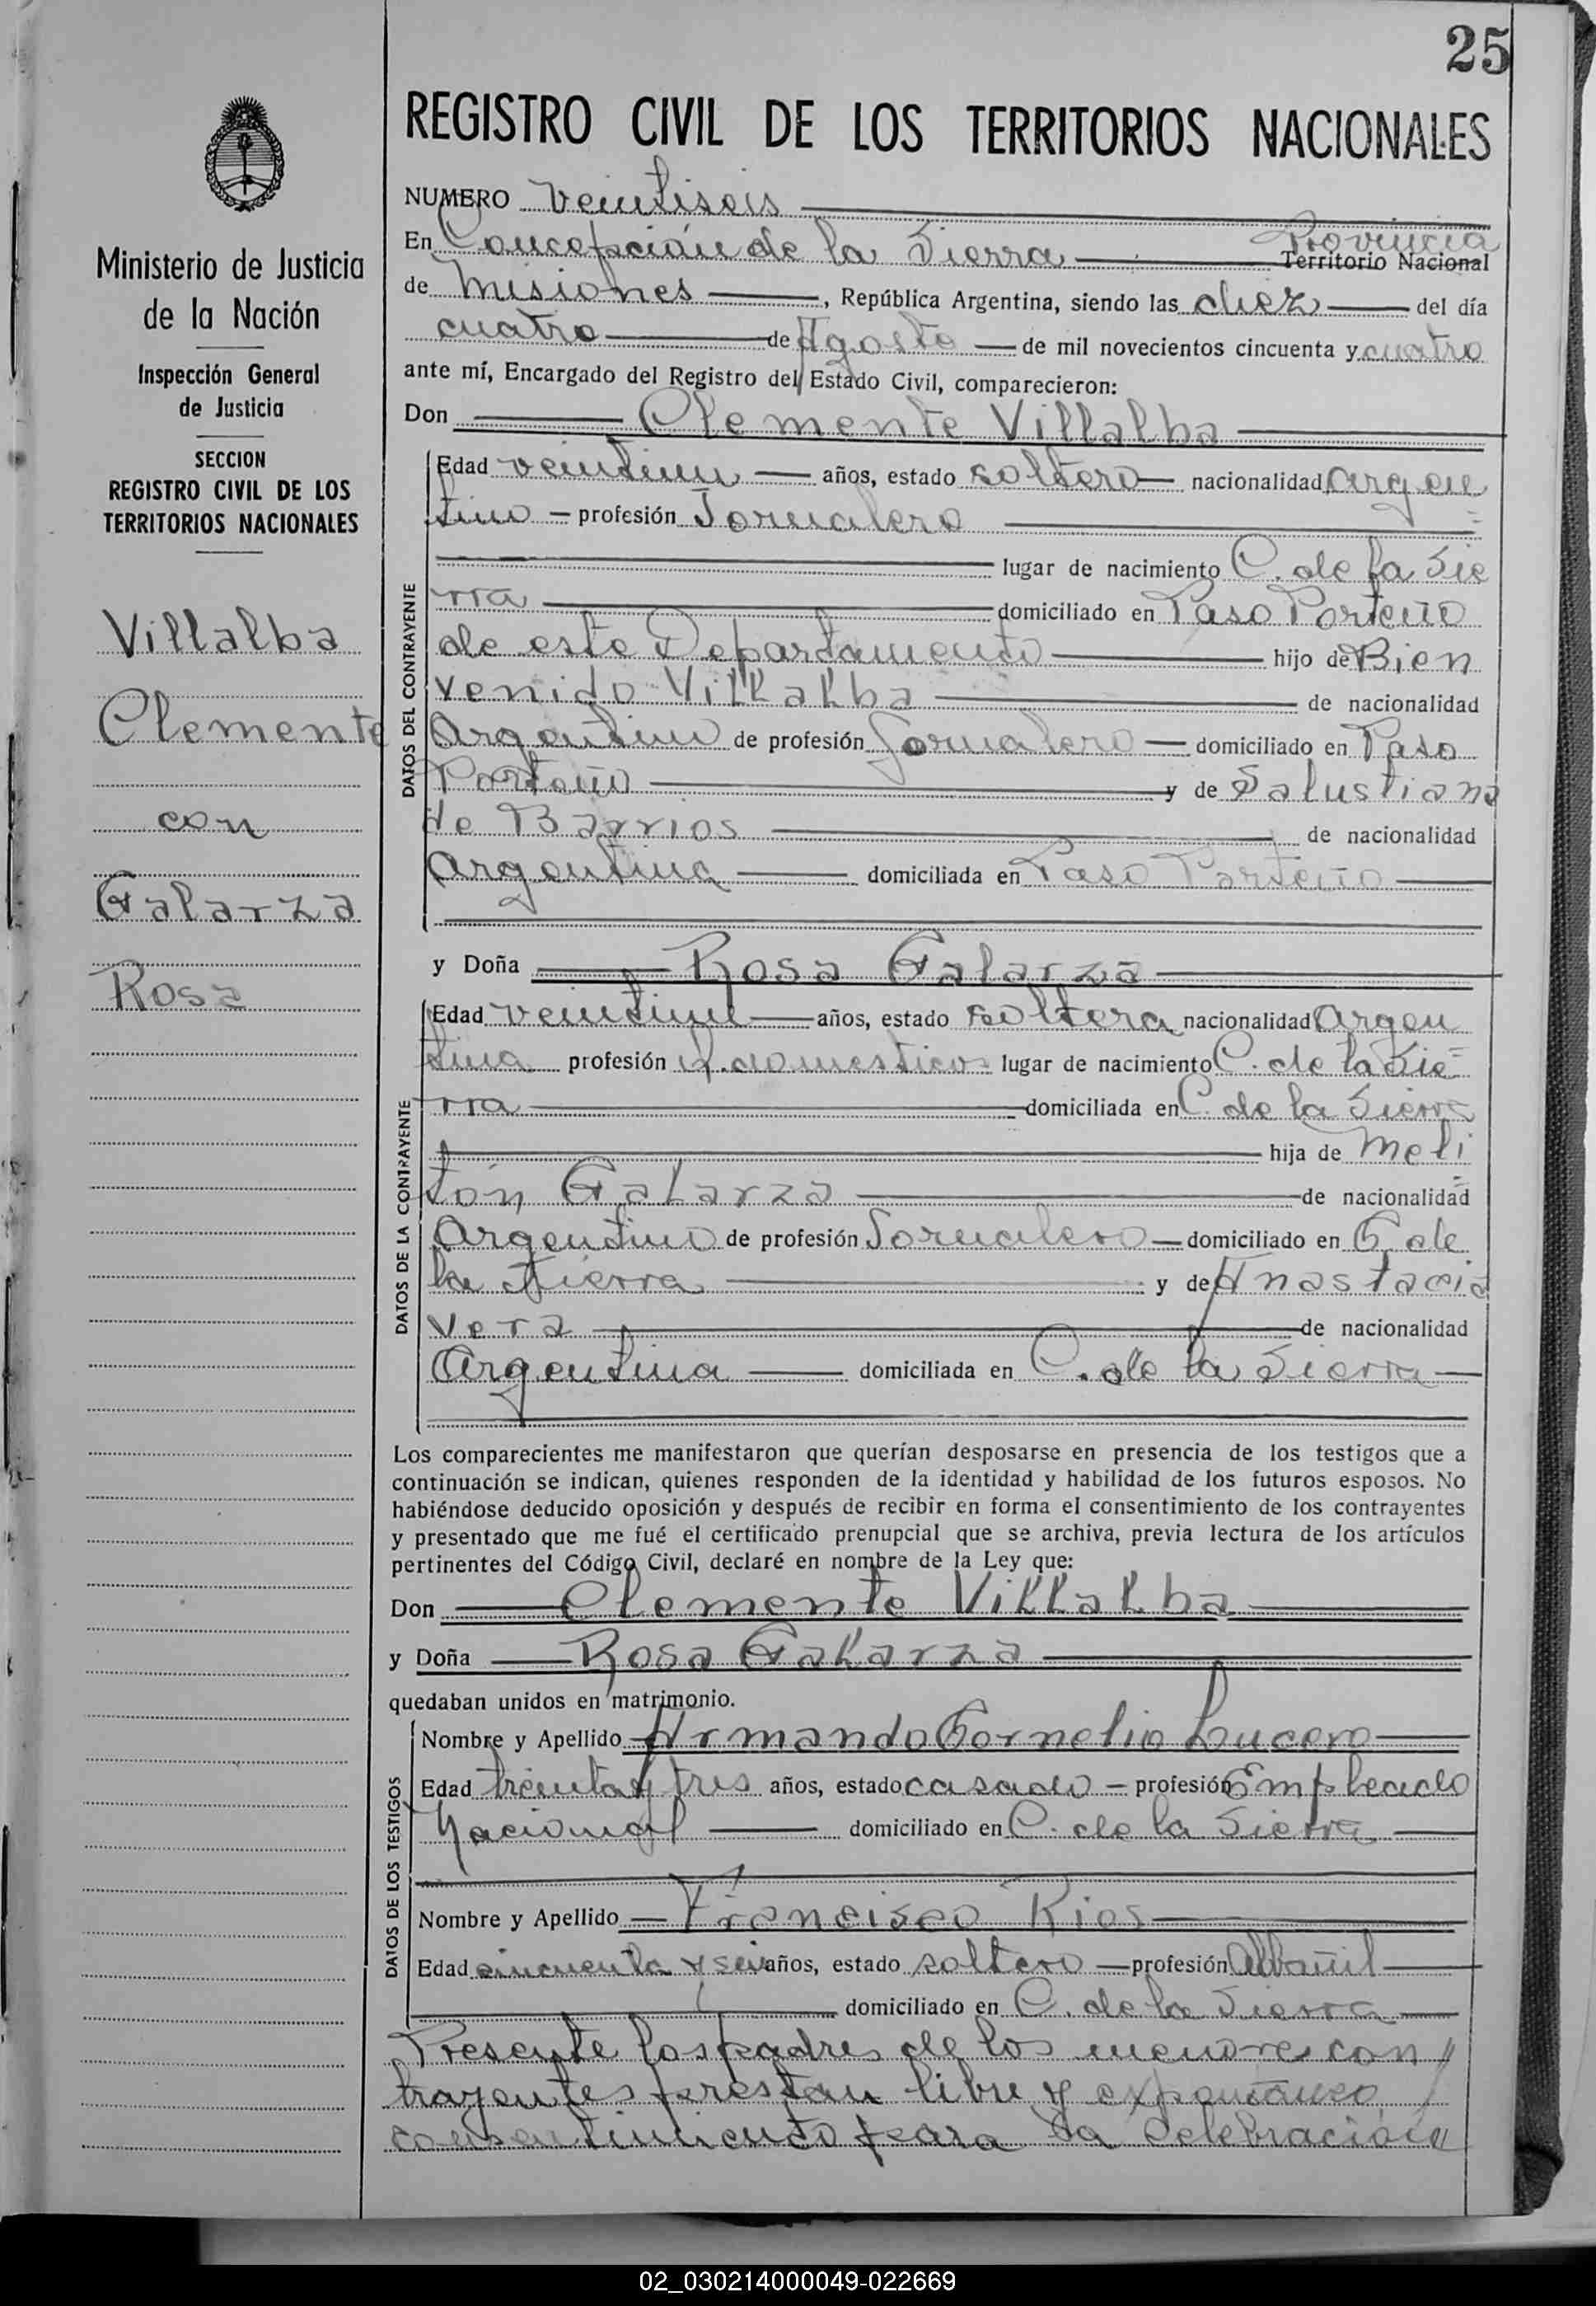 25
REGISTRO CIVIL DE LOS TERRITORIOS NACIONALES
Ministerio de Justicia
de la Nación
Inspección General
de Justicia
SECCION
REGISTRO CIVIL DE LOS
TERRITORIOS NACIONALES
Villalba
Clemente
con
Galarza
Rosa
NUMERO veintiseis
En Concepción de la Sierra Provincia
Territorio Nacional
de Misiones, República Argentina, siendo las diez del día
cuatro de Agosto de mil novecientos cincuenta y cuatro
ante mí, Encargado del Registro del Estado Civil, comparecieron:
Don Clemente Villalba
DATOS DEL CONTRAYENTE
Edad veintiun años, estado soltero nacionalidad argen
tino - profesión Jornalero
lugar de nacimiento C. de la Sie
rra domiciliado en Paso Porteño
de este Departamento hijo de Bien
venido Villalba de nacionalidad
Argentino de profesión Jornalero domiciliado en Paso
Porteño y de Salustiana
de Barrios de nacionalidad
Argentina domiciliada en Paso Porteño
y Doña Rosa Galarza
DATOS DE LA CONTRAYENTE
Edad veintiun años, estado soltera nacionalidad Argen
tina profesión q. domesticos lugar de nacimiento C. de la Sie=
rra domiciliada en C. de la Sierra
hija de Meli=
tón Galarza de nacionalidad
Argentino de profesión Jornalero domiciliado en C. de
la Sierra y de Anastacia
Vera de nacionalidad
Argentina domiciliada en C. de la Sierra
Los comparecientes me manifestaron que querían desposarse en presencia de los testigos que a
continuación se indican, quienes responden de la identidad y habilidad de los futuros esposos. No
habiéndose deducido oposición y después de recibir en forma el consentimiento de los contrayentes
y presentado que me fué el certificado prenupcial que se archiva, previa lectura de los artículos
pertinentes del Código Civil, declaré en nombre de la Ley que:
Don Clemente Villalba
y Doña Rosa Galarza
quedaban unidos en matrimonio.
DATOS DE LOS TESTIGOS
Nombre y Apellido Armando Cornelio Lucero
Edad treinta y tres años, estado casado - profesión Empleado
Nacional domiciliado en C. de la Sierra
Nombre y Apellido Francisco Rios
Edad cincuenta y seis años, estado soltero profesión Albañil
domiciliado en C. de la Sierra
Presente los padres de los menores con//
trayentes prestan libre y expontaneo
consentimiento para la celebración//
02_030214000049-022669